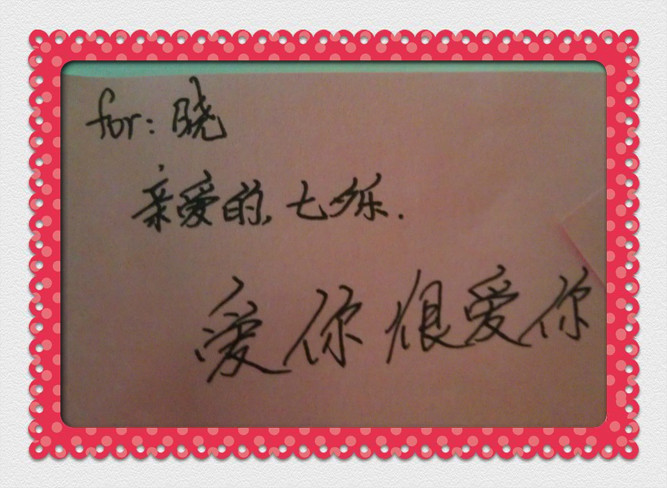 for: 晓
亲爱的, 七夕乐.
爱你 很爱你